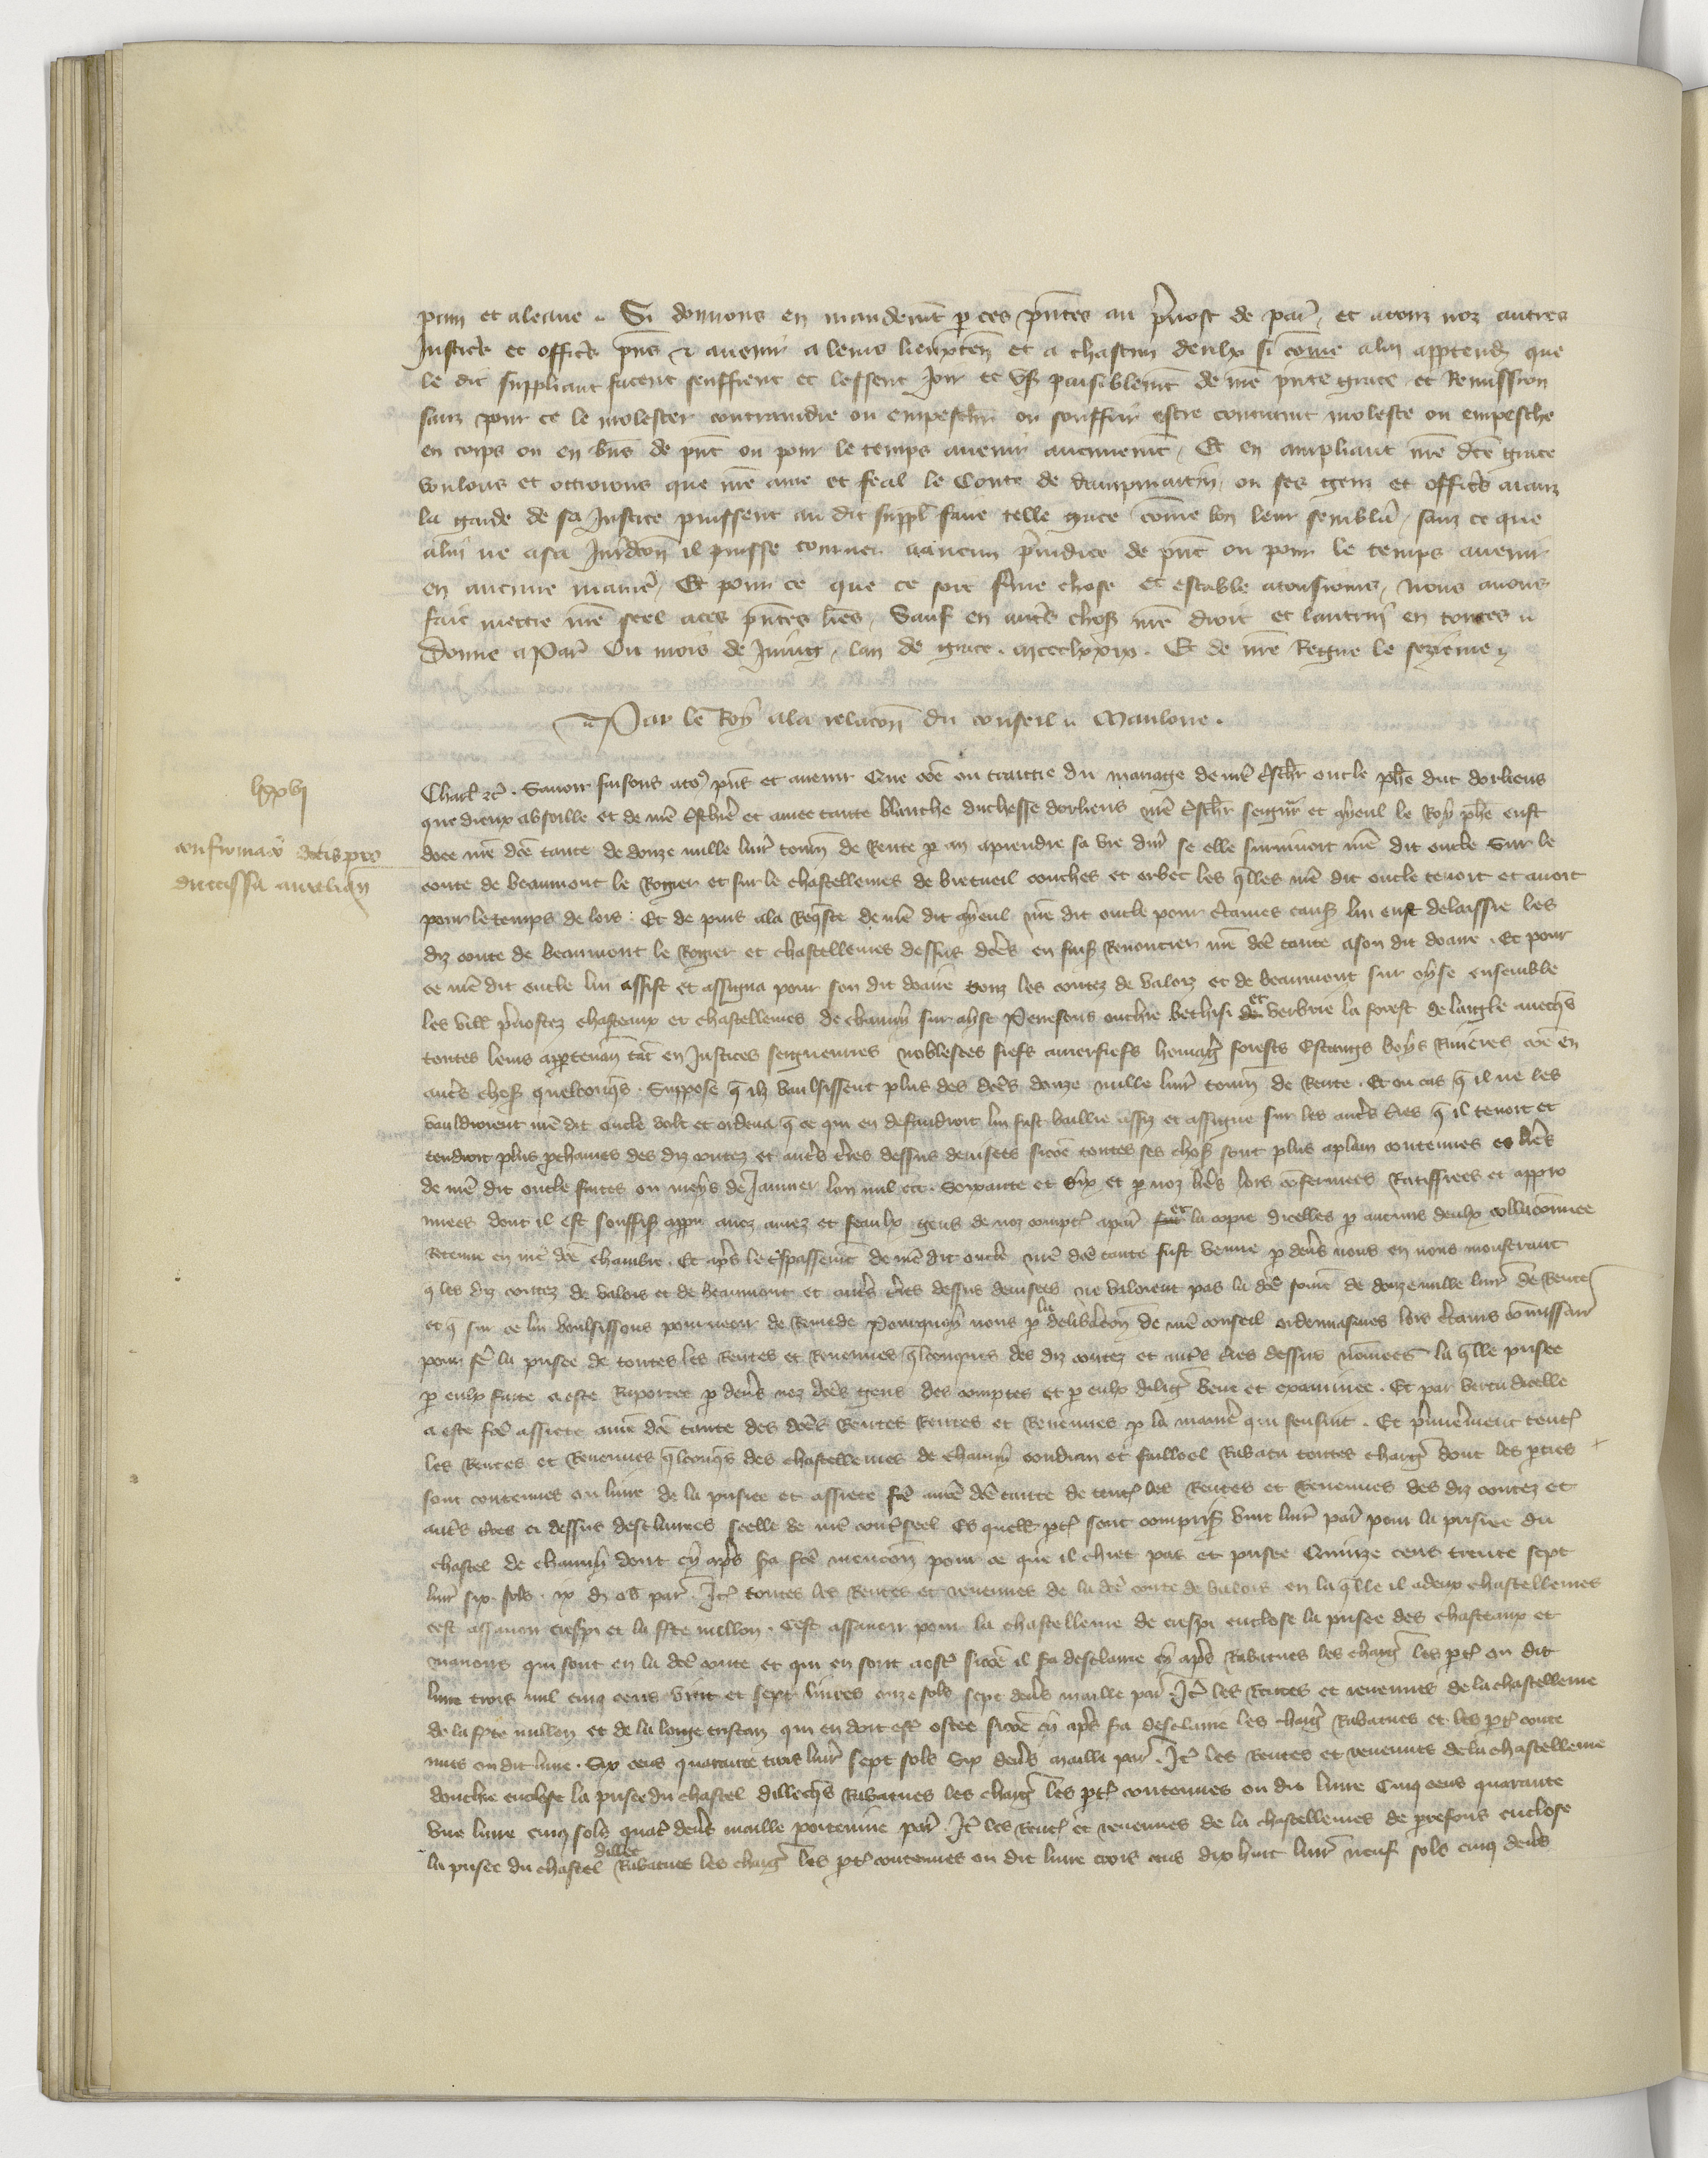 pain et aleaue. Si donnons en mandemt p ces pñtes au p̃uost de par̃, et atouz noz autres
Justic̃ et offic̃ pñs & auenir a leurs lieuxteñ et a chascun deulx si cõme alui apptendr̃ que
le dit suppliant facent seuffrent et lessent joir et us̃ paisiblemt de nr̃e pñte grace et Remission
sanz pour ce le molester contraindre ou empescher ou souffrir estre contraint moleste ou empesche
en corps ou en biẽs de pñt ou pour le temps auenir aucunemt, Et en ampliant nr̃e dc̃e grace
voulons et ottroions que nr̃e ame et feal le Conte de dampmartin, ou ses genz et offic̃s aianz
la garde de sa Justice puissent au dit suppl̃ faire telle grace cõme bon leur semblera, sanz ce que
alui ne asa Jurid̃con il puisse tourner aaucun p̃iudice de pñt ou pour le temps auenir
en aucune manie᷑, Et pour ce que ce soit ferme chose et estable atousiours, Nous auons
fait mettre nr̃e seel aces pñtes lr̃es, Sauf en aut̃s chos̃ nr̃e droit et lautrui en toutes
Donne a Par̃ Ou mois de Juing, lan de grace. mccclxxix. Et de nr̃e Regne le sezieme
Par le Roy ala relacõn du conseil Maulone.
lxxvj
confirmacõ dotis pro
ducissa aurelian̄
Charl̃ zc̃. Sauoir faisons atoꝰ pñs et auenir Que cõe ou traittie du mariage de nr̃e t̃schr̃ oncle ph̃e duc dorliens
que dieux absoille et de nr̃e t̃schiẽ et amee tante blanche duchesse dorliens nr̃e t̃schr̃ seigneur̃ et ayeul le Roy ph̃e eust
doee nr̃e dc̃e tante de douze mille liur̃ tourñ de Rente p an aprendre sa vie dur̃ se elle suruiuoit nr̃e dit oncle Sur le
conte de beaumont le Rogier et sur le chastellenies de bretueil conches et orbec les q̃lles nr̃e dit oncle tenoit et auoit
pour le temps de lors: Et de puis ala Req̃ste de nr̃e dit ayeul nr̃e dit oncle pour c̃taines caus̃ lui eust delaissie les
diz conte de beaumont le Rogier et chastellenies dessus dc̃es en fais̃ Renoncier nr̃e dc̃e tante ason dit doaire. Et pour
ce nr̃e dit oncle lui assist et assigna pour son dit doaire touz les contez de valois et de beaumont sur oyse ensemble
les vill̃ p̃uostez chasteaux et chastellenies de chauny sur ayse Pierefons ouchie bethisi de et verberie la forest de laigle auecq̃s
toutes leurs apptenañ tãt en Justices seigneuries noblesces fiefs arrerfiefs homag̃ forests Estangs boys Riuieres cõe en
aut̃s chos̃ quelconq̃s. Suppose q̃ ilz vaulsissent plus des dc̃es douze mille liur̃ tourñ de Rente. Et ou cas q̃ il ne les
vauldroient nr̃e dit oncle volt et ordena q̃ ce qui en defaudroit lui fust baillie assiz et assigne sur les aut̃s t̃res q̃ il tenoit et
tendroit plus p̃chaines des diz contez et aut̃s t̃res dessus deuisees sicõe toutes ses chos̃ sont plus aplain contenues es lr̃es
de nr̃e dit oncle faites ou moys de Januier lan mil ccc. Soixante et Six et p noz lr̃es lors cõfermees Ratiffiees et appro
uuees dont il est souffis̃ appu auoz amez et feaulx gens de noz compt̃ apar̃ et la copie dicelles p aucuns deulx collacõnnee
Retenue en nr̃e dc̃e chambre. Et ap̃s le t̃spassemt de nr̃e dit oncle nr̃e dc̃e tante fust venue p deu̾s nous en nous monstrant
q̃ les diz contez de valois et de beaumont et aut̃s t̃res dessus deuisees ne valoient pas la dc̃e sõme de douze mille liur̃ de Rente
et q̃ sur ce lui voulsissons pourueoir de Remede Pourquoy nous p la delib̃acõn de nr̃e conseil ordenasmes lors c̃tains cõmissair̃
pour fẽ la prisee de toutes les Rentes et Reuenues q̃lconques des diz contez et aut̃s t̃res dessus nõmees la q̃lle prisee
p eulx faite a este Raportee p deu̾s noz dc̃es gens des comptes et p eulx dilig̃ veue et examinee. Et par vertu dicelle
a este fc̃e assiete anr̃e dc̃e tante des dc̃es Rentes Rentes et Reuenues p la manie᷑ qui sensuit. Et p̃mierement tout̃
les Rentes et Reuenues q̃lconq̃s des chastellenies de chauny condran et faillouel Rabatu toutes charg̃ dont les p̃ties
sont contenues ou liure de la prisiee et assiete fc̃e anr̃e dc̃e tante de tout̃ les Rentes et Reuenues des diz contez et
aut̃s t̃res ci dessus desclairees seelle de nr̃e cont̃seel Es quell̃ pt̃ sont compris̃ vint liur̃ par̃ pour la prisiee du
chastel de chauny dont cy ap̃s s̃ra fc̃e mencõn pour ce que il chiet pas et prisee Quinze cens trente sept
liur̃ six sols. ix d̃ ob̃ par̃. Jt̃ toutes les Rentes et reuenues de la dc̃e conte de valois en la q̃lle il adeux chastellenies
cest assauoir crespi et la fr̃te millon. Cest assauoir pour la chastellenie de crespi enclose la prisee des chasteaux et
manoirs qui sont en la dc̃e conte et qui en sont aoste᷑ sicõe il s̃ra desclaire cy ap̃s Rabatues les charg̃ les pt̃ ou dit
liure trois mil cinq cens vint et sept liures onze sols sept deñs maille par̃. Jt̃ les Rentes et reuenues de la chastellenie
de la fr̃te millon et de la longe tristan qui en doit est̃ ostee sicõe cy ap̃s s̃ra desclaire les charg̃ Rabatues et les pt̃ conte
nues ou dit liure. Six cens quarante trois liur̃ sept sols Six deñs maille par̃. Jt̃ les Rentes et reuenues dela chastellenie
douchie enclose la prisee du chastel dillecq̃s Rabatues les charg̃ les pt̃ contenues ou dit liure Cinq cens quarante
vne liure cinq sols quat̃ deñs maille poiteuine par̃. Jt̃ les Rent̃ et reuenues de la chastellenies de prefons enclose
la prisee du chastel dillec Rabatues les charg̃ les pt̃ contenues ou dit liure trois cens dix huit liur̃ neuf sols cinq deñs